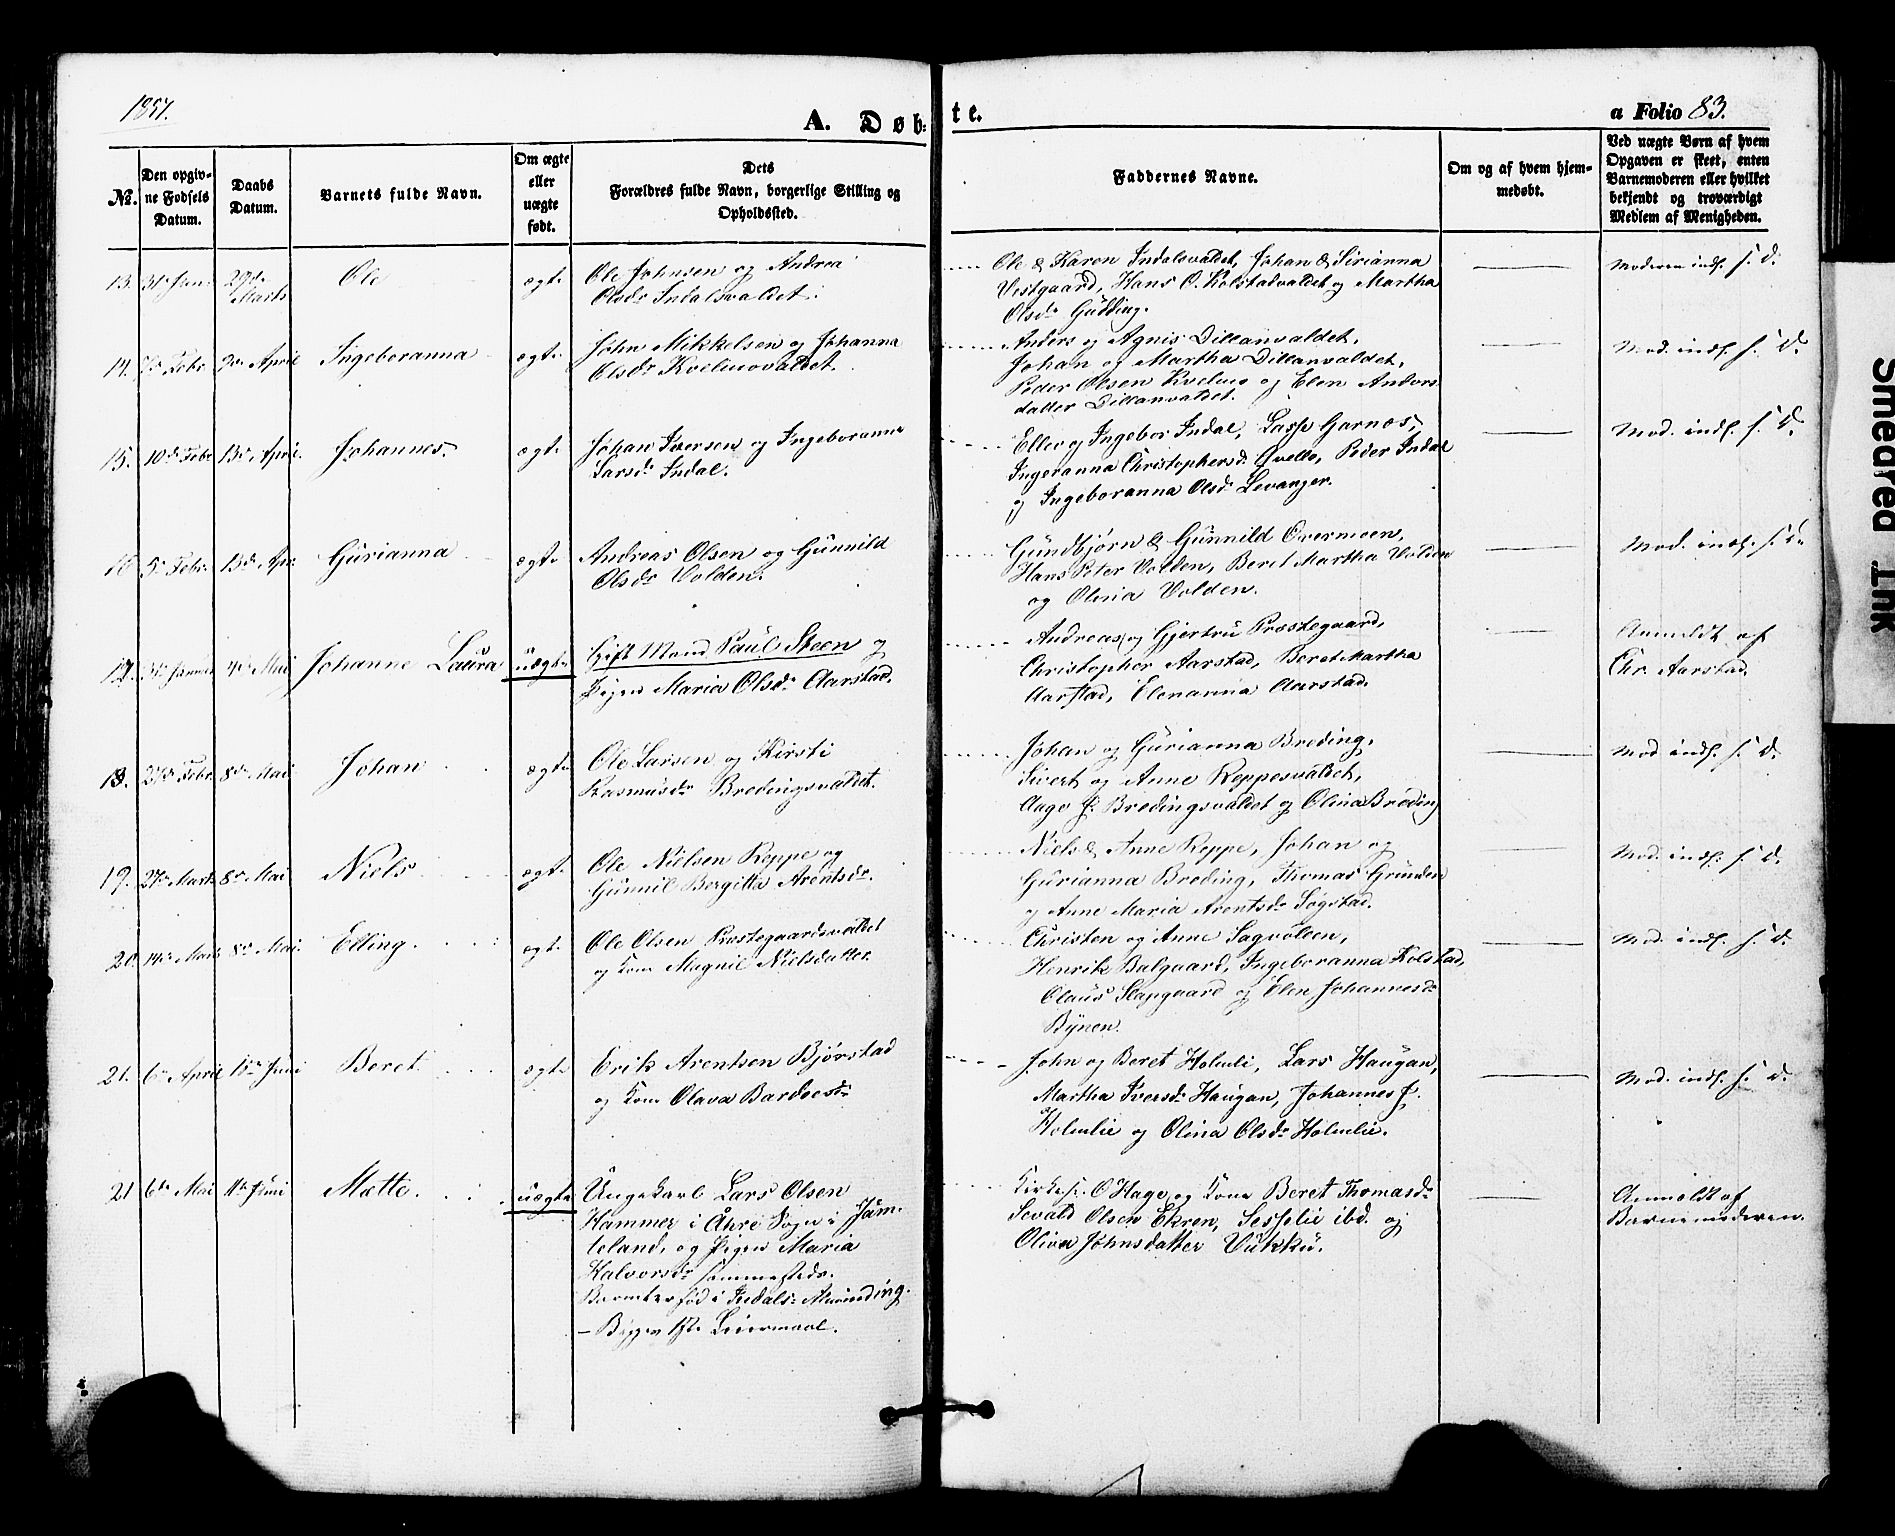 1857.
A. Døb-
te.
a Folio 83.
No.
Den opgiv-
ne Fødsels
Datum.
Daabs
Datum.
Barnets fulde Navn.
Om ægte
eller
uægte
født.
Dets
Forældres fulde Navn, borgerlige Stilling og
Opholdssted.
Faddernes Navne.
Om og af hvem hjem-
medøbt.
Ved uægte Børn af hvem
Opgaven er skeet, enten
Barnemoderen eller hvilket
bekjendt og troværdigt
Medlem af Menigheden.
13. 31te Jan. 29de Marts Ole ægte
Ole Johnsen og Andrea
Olsdr Indalsvaldet.
Ole & Karen Indalsvaldet, Johan & Sirianna
Vestgaard, Hans O. Kolstadvaldet og Martha
Olsdr Gudding.
Moderen indl. s. D.
14. Febr. April Ingeboranna ægte
John Mikkelsen og Johanna
Olsdr Kvelmovaldet.
Anders og Agnis Dillanvaldet,
Johan og Martha Dillanvaldet,
Peder Olsen Kvelmo og Elen Anders
datter Dillanvaldet.
Mod. indl. s. D.
15. 10de Febr 13de April Johannes. ægte
Johan Iversen og Ingeboranna
Larsdr Indal.
Ellev og Ingebor Indal, Lasse Garnæs,
Ingeranna Christophersd. Qvello, Peder Indal
og Ingeboranna Olsdr Levanger.
Mod. indl. s. D.
16 5te Febr. 13de Apr. Gurianna ægte
Andreas Olsen og Gunnild
Olsdr Volden.
Gundbjørn & Gunnild Overmoen,
Hans Peter Volden, Beret Martha Volden
og Olina Volden.
Mod. indl. s. D.
17. Mai Johanne Laura uægte
Gift Mand Paul Steen og
Pigen Maria Olsdr Aarstad.
Andreas og Gjertru Præstegaard,
Christopher Aarstad, Beret Martha
Aarstad, Elenanna Aarstad.
Anmeldt af
Chr. Aarstad.
18. 27de Febr. 8de Mai Johan ægte
Ole Larsen og Kirsti
Rasmusdr Bredingsvaldet.
Johan og Gurianna Breding,
Sivert og Anne Reppesvaldet,
Aage J. Bredingsvaldet og Olina Breding
Mod indl. s. D.
19. 27de Marts 8de Mai Niels ægte
Ole Nielsen Reppe og
Gunnil Bergitta Arentsdr.
Niels & Anne Reppe, Johan og
Gurianna Breding, Thomas Grunden
og Anne Maria Arentsdr Søgstad.
Mod. indl. s. D.
20. 14de Marts 8de Mai Elling. ægte
Ole Olsen Præstegaardsvaldet
og Kone Magnil Nielsdatter.
Christen og Anne Sagvolden,
Henrik Balgaard, Ingeboranna Kolstad,
Olaus Slapgaard og Elen Johannesdr
Bynen.
Mod. indl. s. D.
21. 6te April Juni Beret ægte
Erik Arentsen Bjørstad
og Kone Olava Bardosdr
John og Beret Holmli, Lars Haugan,
Martha Iversdr Haugan, Johannes J.
Holmlie og Olina Olsdr Holmlie.
Mod. indl. s. D.
21 6te Mai 11te Juni Mette. uægte
Ungekarl Lars Olsen
Hammer i Åhre Sogn i Jäm-
teland, og Pigen Maria
Halvorsdr sammesteds.
Barnet er fød i Indals-Alminding.
– Begges 1ste Leiermaal.
Kirkes. O Hage og Kone Beret Thomasdr
Sevald Olsen Ekren, Sesselie ibd. og
Oliva Johnsdatter Vukku.
Anmeldt af
Barnemoderen.
Smeared Ink